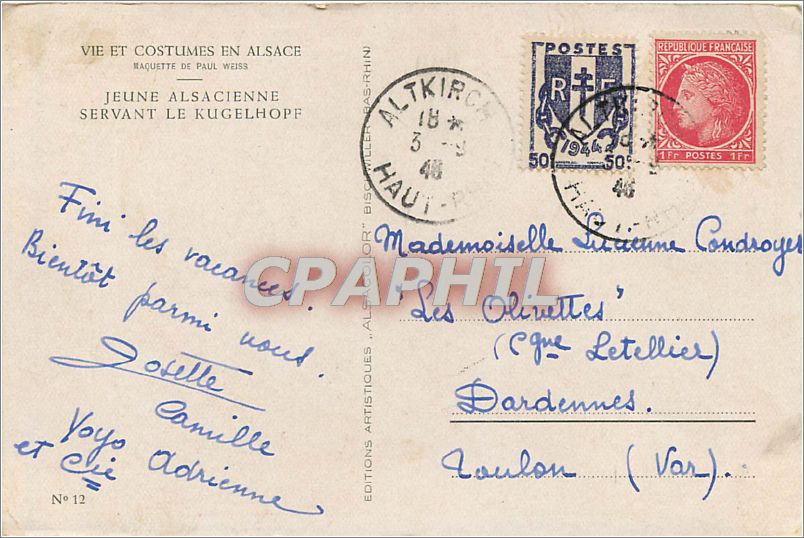 VIE ET COSTUMES EN ALSACE
MAQUETTE DE PAUL WEISS
JEUNE ALSACIENNE
SERVANT LE KUGELHOPF
Fini les vacances.
Bientôt parmi vous.
Josette
Camille
Yoyo Adrienne
et Cie
N° 12
EDITIONS ARTISTIQUES "ALSACOLOR" BISCHWILLER (BAS-RHIN)
ALTKIRCH
18 *
3 - 9
46
HAUT-RHIN
POSTES
R F
1944
50c 50c
REPUBLIQUE FRANÇAISE
1Fr POSTES 1Fr
ALTKIRCH
46
HAUT-RHIN
Mademoiselle Lucienne Condroyer
"Les Olivettes"
(Cgne Letellier)
Dardennes.
Toulon (Var).
CPAPHIL